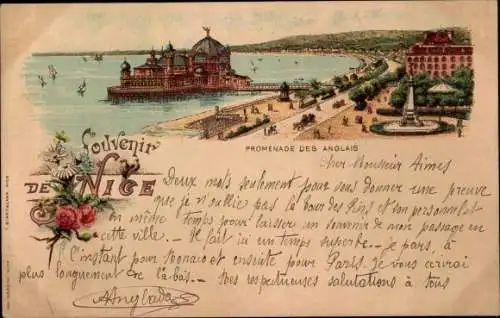 PROMENADE DES ANGLAIS
Souvenir
DE NICE
Cher Monsieur Aimes
Deux mots seulement pour vous donner une preuve
que je n'oublie pas la Cour des Pins et son personnel et
en même temps pour laisser un souvenir de mon passage en
cette ville. — Il fait ici un temps superbe. — Je pars, à
l'instant pour Monaco et ensuite pour Paris. Je vous écrirai
plus longuement de là-bas. — Mes respectueuses salutations à tous
A. Anglada